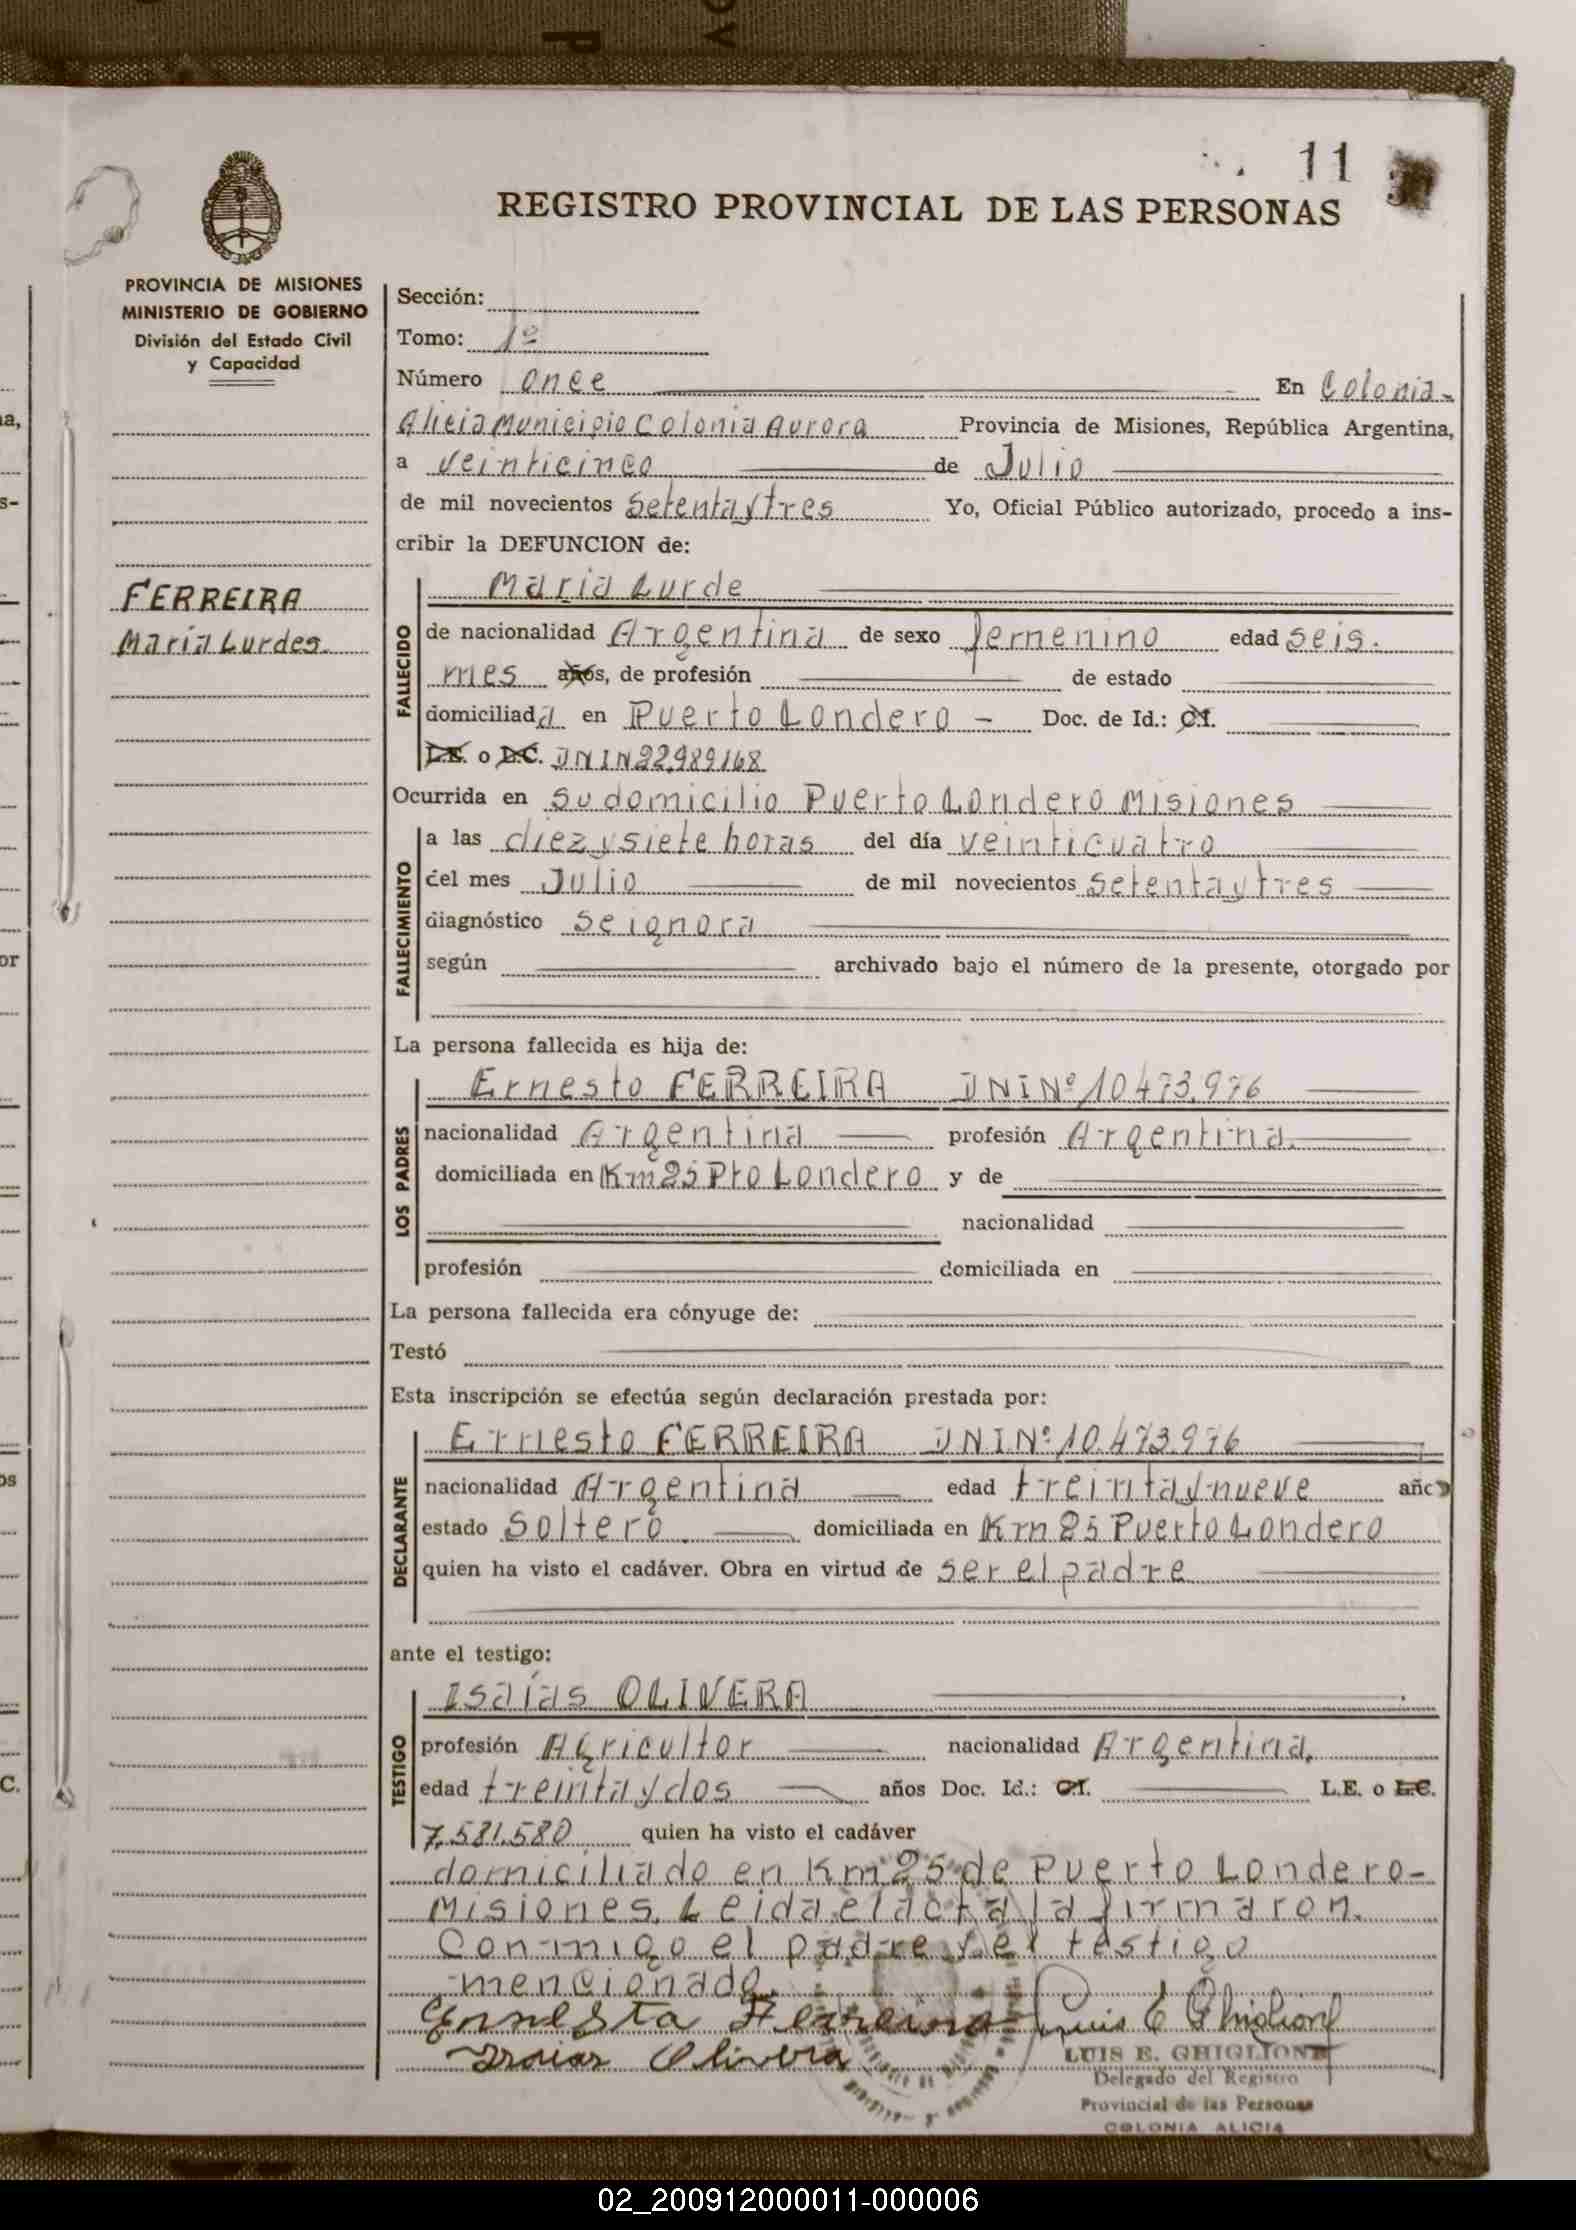 11
REGISTRO PROVINCIAL DE LAS PERSONAS
PROVINCIA DE MISIONES
MINISTERIO DE GOBIERNO
División del Estado Civil
y Capacidad
FERREIRA
María Lurdes.
Sección:
Tomo: 1º
Número once En Colonia
Alicia Municipio Colonia Aurora Provincia de Misiones, República Argentina,
a veinticinco de Julio
de mil novecientos Setentaytres Yo, Oficial Público autorizado, procedo a ins-
cribir la DEFUNCION de:
FALLECIDO
María Lurde
de nacionalidad Argentina de sexo femenino edad seis.
mes años, de profesión de estado
domiciliada en Puerto Londero - Doc. de Id.: C.I.
L.E. o L.C. DNIN 22.989.168
Ocurrida en su domicilio Puerto Londero Misiones
FALLECIMIENTO
a las diez y siete horas del día veinticuatro
del mes Julio de mil novecientos Setentaytres
diagnóstico Se ignora
según archivado bajo el número de la presente, otorgado por
La persona fallecida es hija de:
LOS PADRES
Ernesto FERREIRA DNINº 10.473.976
nacionalidad Argentina profesión Argentina.
domiciliada en Km 25 Pto Londero y de
nacionalidad
profesión domiciliada en
La persona fallecida era cónyuge de:
Testó
Esta inscripción se efectúa según declaración prestada por:
DECLARANTE
Ernesto FERREIRA DNI.Nº 10.473.976
nacionalidad Argentina edad treintaynueve año
estado Soltero domiciliada en Km 25 Puerto Londero
quien ha visto el cadáver. Obra en virtud de ser el padre
ante el testigo:
TESTIGO
Isaías OLIVERA
profesión Agricultor nacionalidad Argentina.
edad treinta y dos años Doc. Id.: C.I. L.E. o L.C.
7.581.580 quien ha visto el cadáver
domiciliado en Km 25 de Puerto Londero-
Misiones. Leida el acta la firmaron.
Conmigo el padre y el testigo
mencionado.
Ernesta Ferreira Luis E Ghiglione
Isaias Olivera
LUIS E. GHIGLIONE
Delegado del Registro
Provincial de las Personas
COLONIA ALICIA
02_200912000011-000006